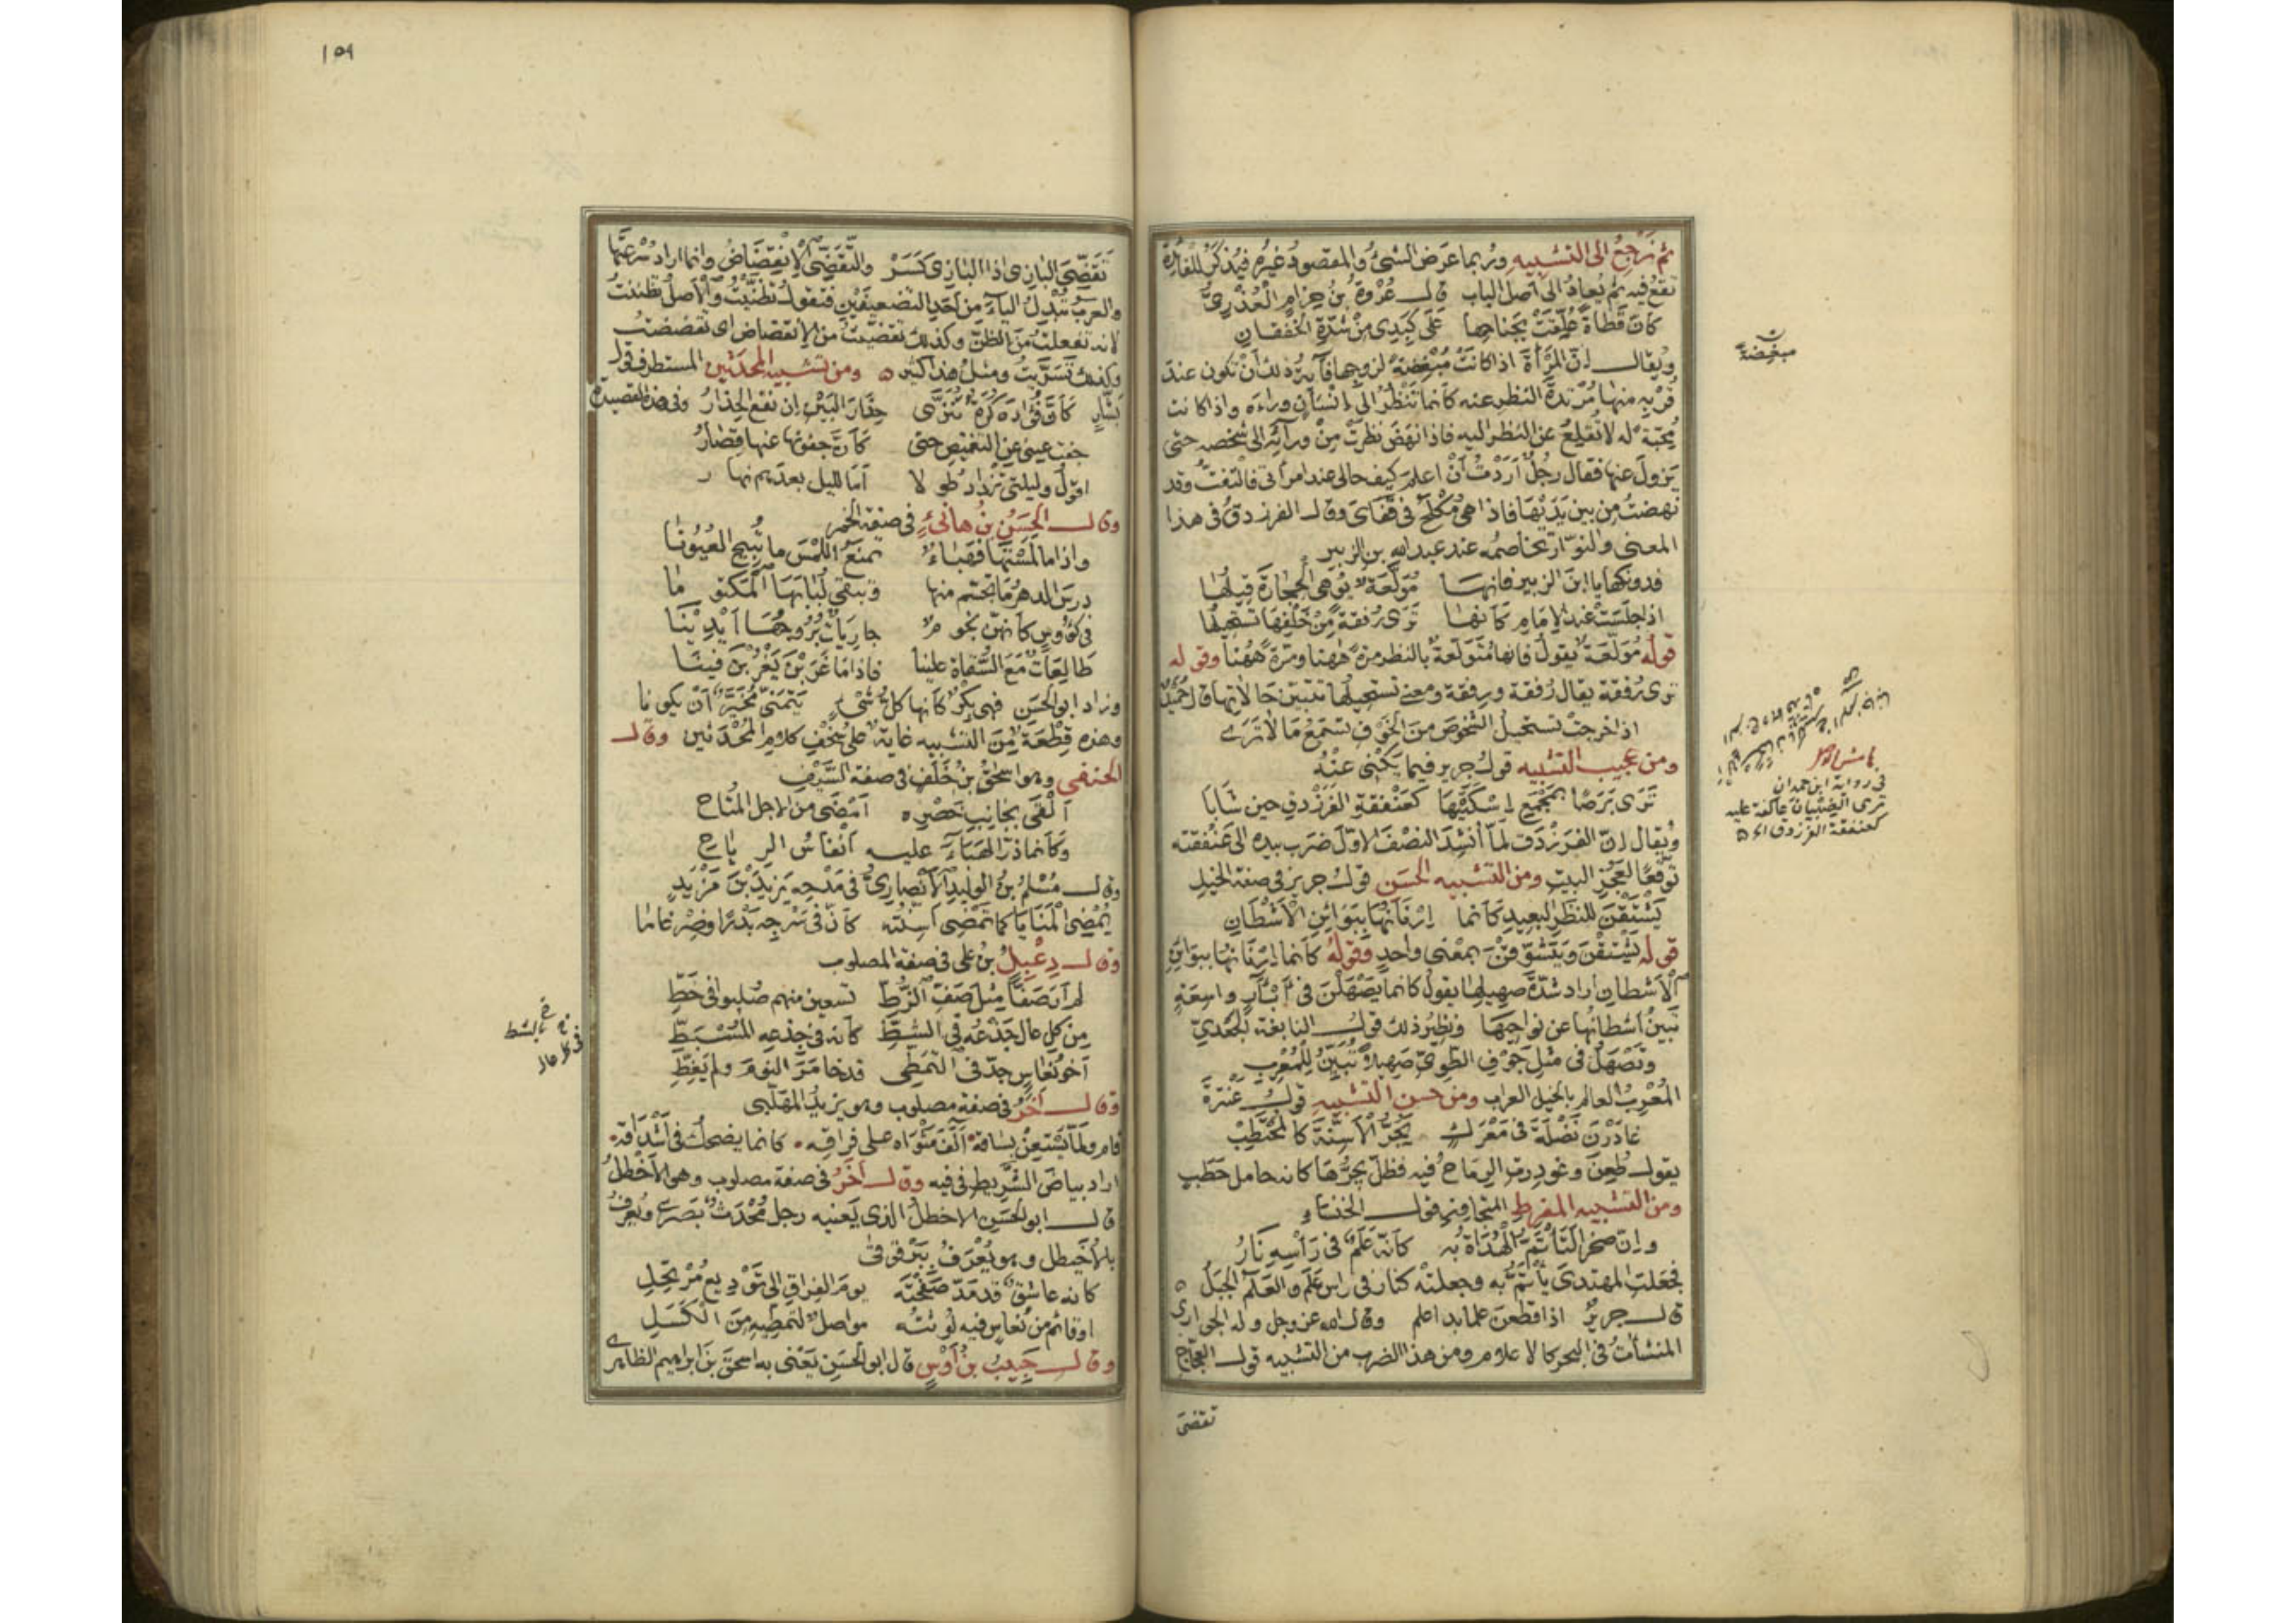 ثم نرجع الى التشبيه وربما عرض الشئ والمقصود غيره فيذكر للفائدة
تقع فيه ثم يعاد الى اصل الباب قال عروة بن حزام العذري
كأن قطاة علقت بجناحها على كبدي من شدة الخفقان
ويقال ان المرأة اذا كانت مبغضة لزوجها فآية ذلك أن تكون عند
قربه منها مرتدة النظر عنه كانما تنظر الى إنسان وراءه واذا كانت
محبة له لا تقلع عن النظر اليه فاذا نهض نظرت من ورائه الى شخصه حتى
يزول عنها فقال رجل أردت أن اعلم كيف حالى عند امرأتى فالتفت وقد
نهضت من بين يديها فاذا هى تكلح فى قفاى وقال الفرزدق فى هذا
المعنى والنوار تخاصمه عند عبد الله بن الزبير
فدونكها يا ابن الزبير فانها مولعة يوهى الحجارة قيلها
اذا جلست عند الامام كأنها ترى رفقة من خلفها تستحيلها
قوله مولعة يقول فانها متولعة بالنظر مرة ههنا ومرة ههنا وقوله
ترى رفقة يقال رفقة ورفقة ومعنى تستحيلها تتبين حالاتها قال حميد
اذا خرجت تستحيل الشخوص من الخوف تسمع ما لا ترى
ومن عجيب التشبيه قول جرير فيما يكنى عنه
ترى برصا بمجمع إسكتيها كعنفقة الفرزدق حين شابا
ويقال ان الفرزدق لما أنشد النصف الاول ضرب بيده الى عنفقته
توقعا لعجز البيت ومن التشبيه الحسن قول جرير فى صفة الخيل
يشتقن للنظر البعيد كأنما إرنانها ببوائن الأشطان
قوله يشتقن ويتشوفن بمعنى واحد وقوله كانما إرنانها ببوائن
الأشطان اراد شدة صهيلها يقول كانما يصهلن فى أبآر واسعة
تبين أشطانها عن نواحيها ونظير ذلك قول النابغة الجعدي
وتصهل فى مثل جوف الطوي صهيلا تبين للمعرب
المعرب العالم بالخيل العراب ومن حسن التشبيه قول عنترة
غادرن نضلة فى معرك يجر الأسنة كالمحتطب
يقول طعن وغودرت الرماح فيه فظل يجرها كانه حامل حطب
ومن التشبيه المفرط المتجاوز قول الخنساء
وإن صخرا لتأتم الهداة به كأنه علم فى رأسه نار
فجعلت المهتدى يأتم به وجعلته كنار فى رأس علم والعلم الجبل
قال جرير اذا قطعن علما بدا علم وقال الله عز وجل وله الجوارى
المنشآت فى البحر كالاعلام ومن هذا الضرب من التشبيه قول العجاج
تقضى
مبغضة
فى رواية ابن حمدان
ترى الصئبان عاكفة عليه
كعنفقة الفرزدق
١٥٩
تقضي البازى اذا البازى كسر والتقضي الانقضاض وانما اراد سرعتها
والعرب تبدل الياء من احد التضعيفين فتقول تظنيت والأصل تظننت
لانه تفعلت من الظن وكذلك تقضيت من الانقضاض اى تقضضت
وكذلك تسريت ومثل هذا كثير ومن تشبيه المحدثين المستطرف قول
بشار كأن فؤاده كرة تنزى حذار البين إن نفع الحذار وفى هذه القصيدة
جفت عينى عن التغميض حتى كأن جفونها عنها قصار
اقول وليلتى تزداد طولا أما لليل بعدهم نهار
وقال الحسن بن هانئ فى صفة الخمر
واذا ما لمستها فهباء تمنع اللمس ما تبيح العيونا
درس الدهر ما تجسم منها وتبقى لبابها المكنونا
فى كؤوس كانهن نجوم جاريات بروجها أيدينا
طالعات مع السقاة علينا فاذا ما غربن يغربن فينا
وزاد ابو الحسن فهى بكر كأنها كل شئ يتمنى مخير أن يكونا
وهذه قطعة من التشبيه غاية على سخف كلام المحدثين وقال
الحنفى وهو اسحق بن خلف فى صفة السيف
ألقى بجانب خصره أمضى من الاجل المتاح
وكأنما ذر الهباء عليه أنفاس الرياح
وقال مسلم بن الوليد الانصارى فى مدحه يزيد بن مزيد
يمضى المنايا كما تمضى أسنته كأن فى سرجه بدرا وضرغاما
وقال دعبل بن على فى صفة المصلوب
لم ار صفا مثل صف الزط تسعين منهم صلبوا فى خط
من كل عال جذعه فى الشط كأنه فى جذعه المشتط
أخو نعاس جد فى التمطى قد خامر النوم ولم يغط
وقال آخر فى صفة مصلوب وهو يزيد المهلبى
قام ولما يستعن بساقه ألف مثواه على فراقه كانما يضحك فى أشداقه
اراد بياض الشريط فى فيه وقال آخر فى صفة مصلوب وهو الأخطل
قال ابو الحسن الاخطل الذى يعنيه رجل محدث بصرى ويعرف
بالأخيطل وهو يعرف ببرقوقى
كانه عاشق قد مد صفحته يوم الفراق الى توديع مرتحل
اوقائم من نعاس فيه لوثته مواصل لتمطيه من الكسل
وقال حبيب بن أوس قال ابو الحسن يعنى به اسحق بن ابراهيم الظاهرى
بالشط